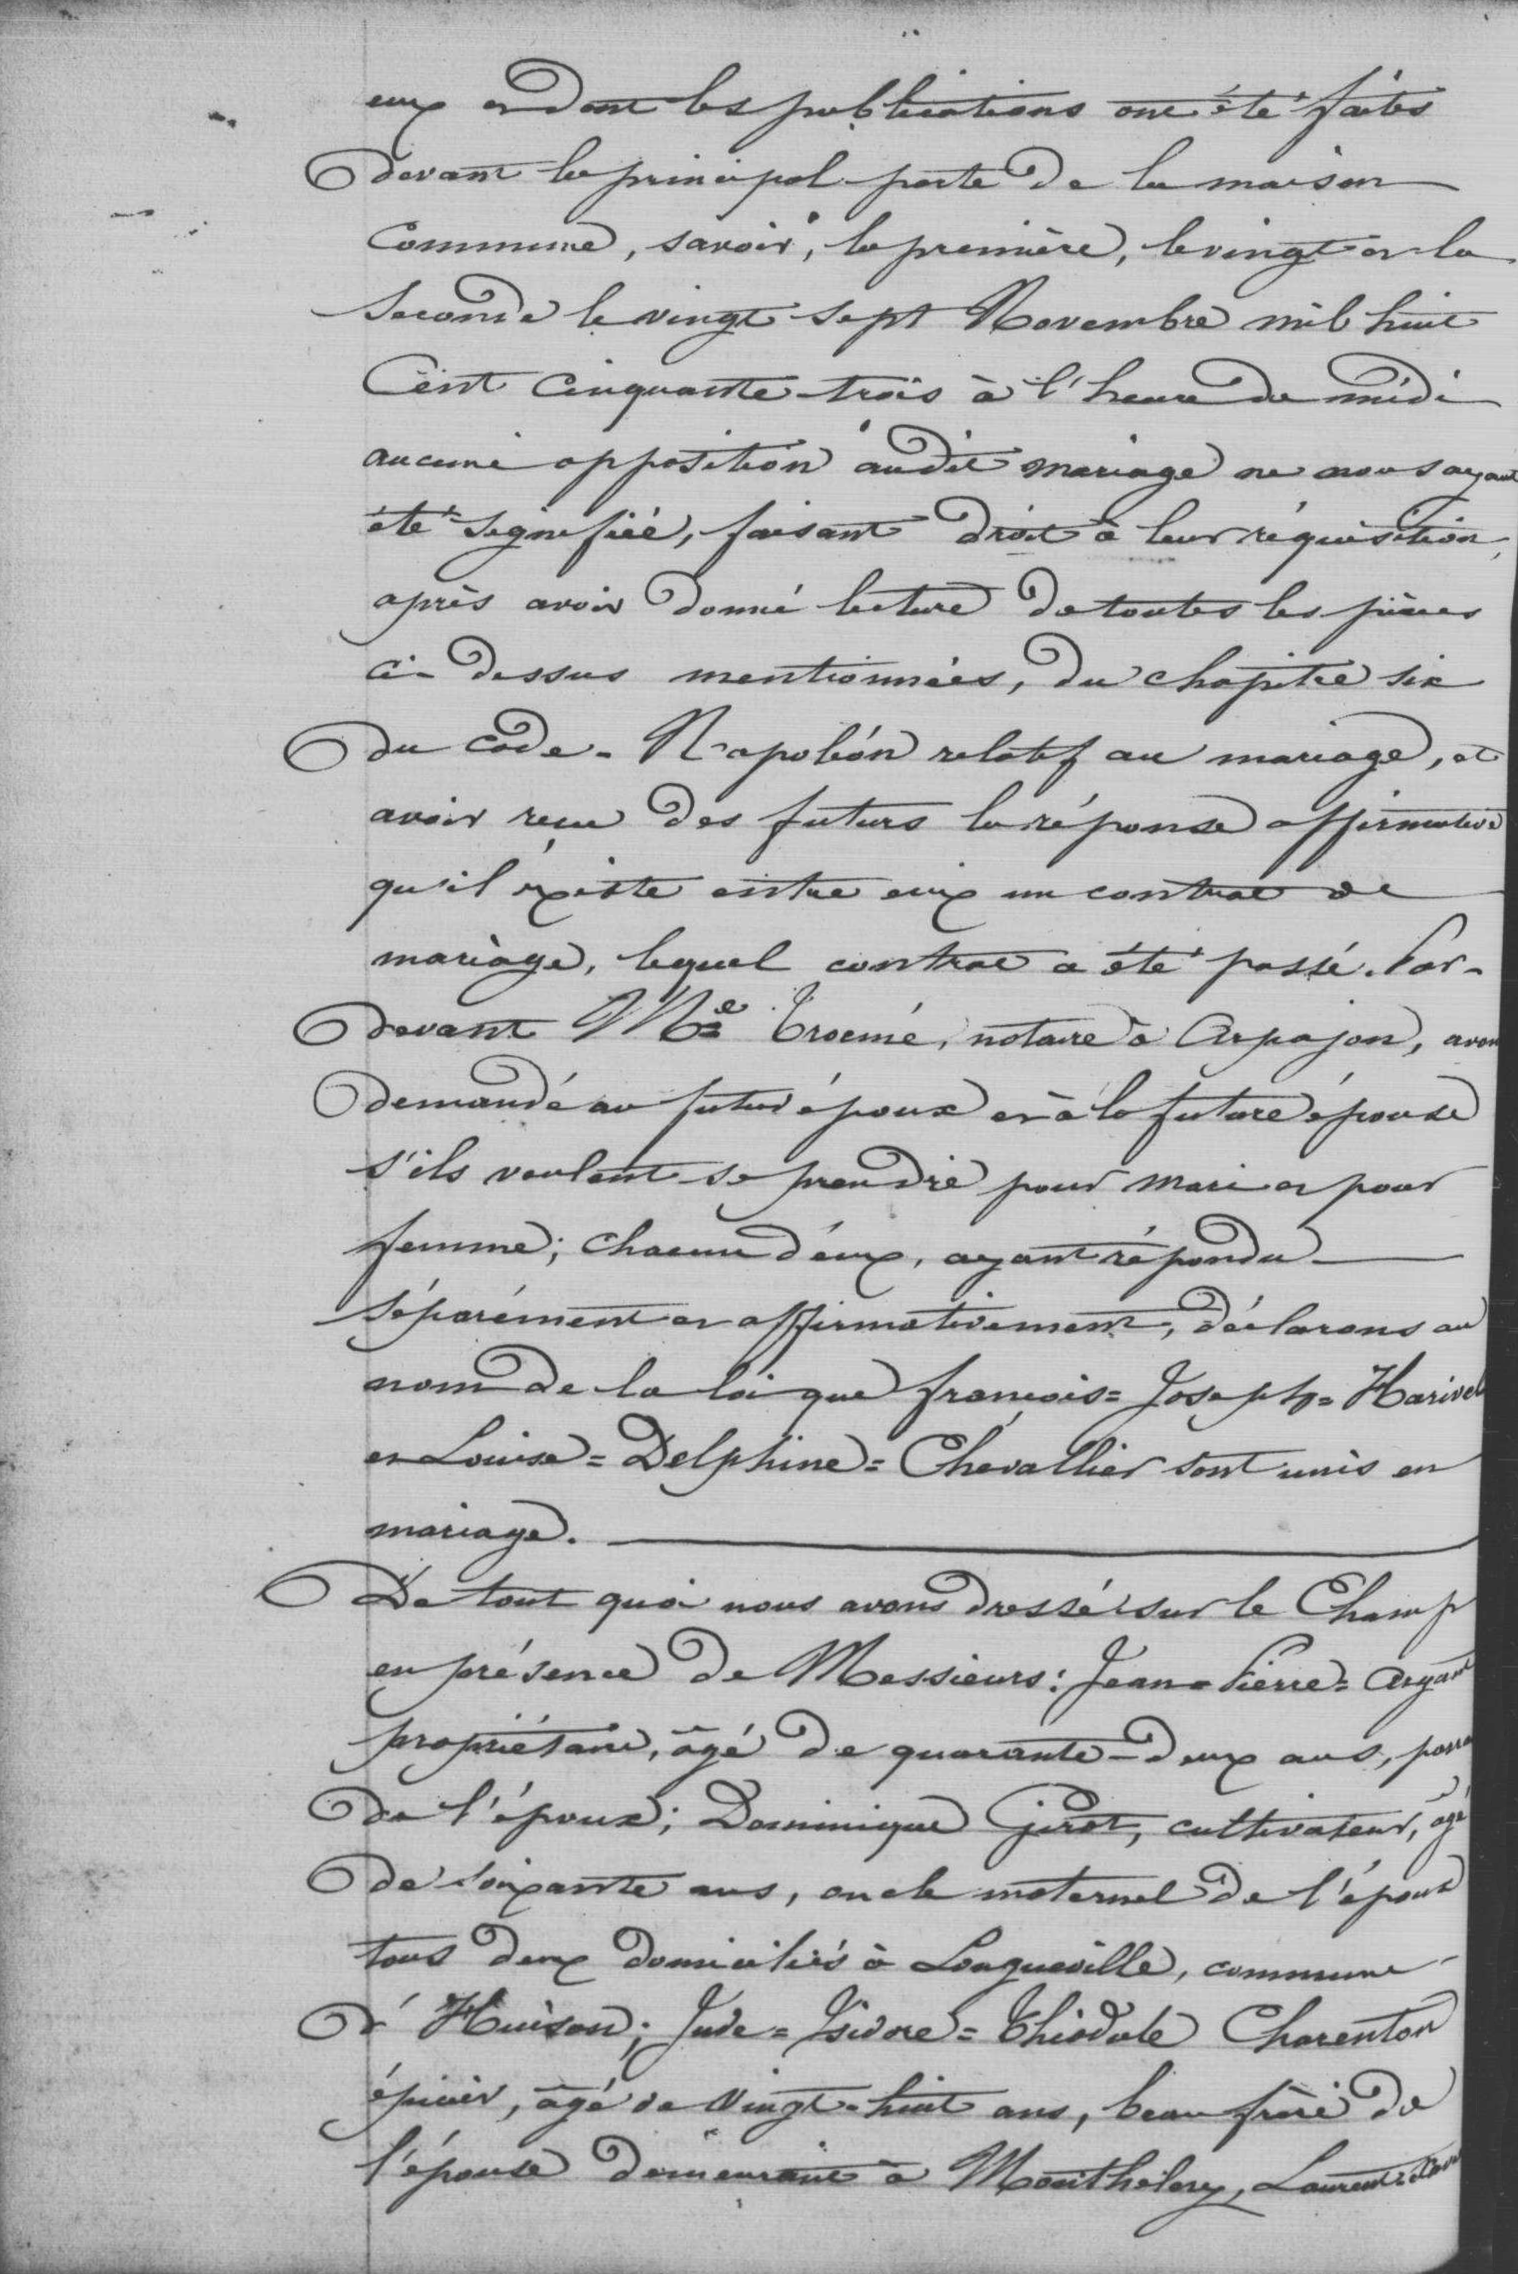 eux et dont les publications ont été faites
devant la principal porte de la maison
Commune, savoir, la première, le vingt et la
Seconde le vingt sept Novembre mil huit
Cent Cinquante-trois à l'heure de midi
aucune opposition audit mariage ne nous ayant
été signifiée, faisant droit à leur réquisition,
après avoir donné lecture de toutes les pièces
ci-dessus mentionnées, du chapitre six
du code-Napoléon relatif au mariage, et
avoir reçu des futurs la réponse affirmative
qu'il existe entre eux un contrat de
mariage, lequel contrat a été passé. Par-
devant Me Trocmé, notaire à Arpajon, avons
demandé au futur époux et à la future épouse
s'ils veulent se prendre pour mari et pour
femme; chacun d'eux, ayant répondu
séparément et affirmativement, déclarons au
nom de la loi que françois=Joseph=Harivel
et Louise=Delphine=Chevallier sont unis en
mariage.
De tout quoi nous avons dressé sur le Champ
en présence de Messieurs: Jean=Pierre=Argant
propriétaire, âgé de quarante-deux ans,
de l'époux; Dominique Girot, cultivateur, âgé
de soixante ans, oncle maternel de l'époux
tous deux domiciliés à Longueville, commune
d'Huison; Jude=Isidore=Thiodule Charenton
épicier, âgé de vingt-huit ans, beau frère de
l'épouse demeurant à Montlhéry, Laurent